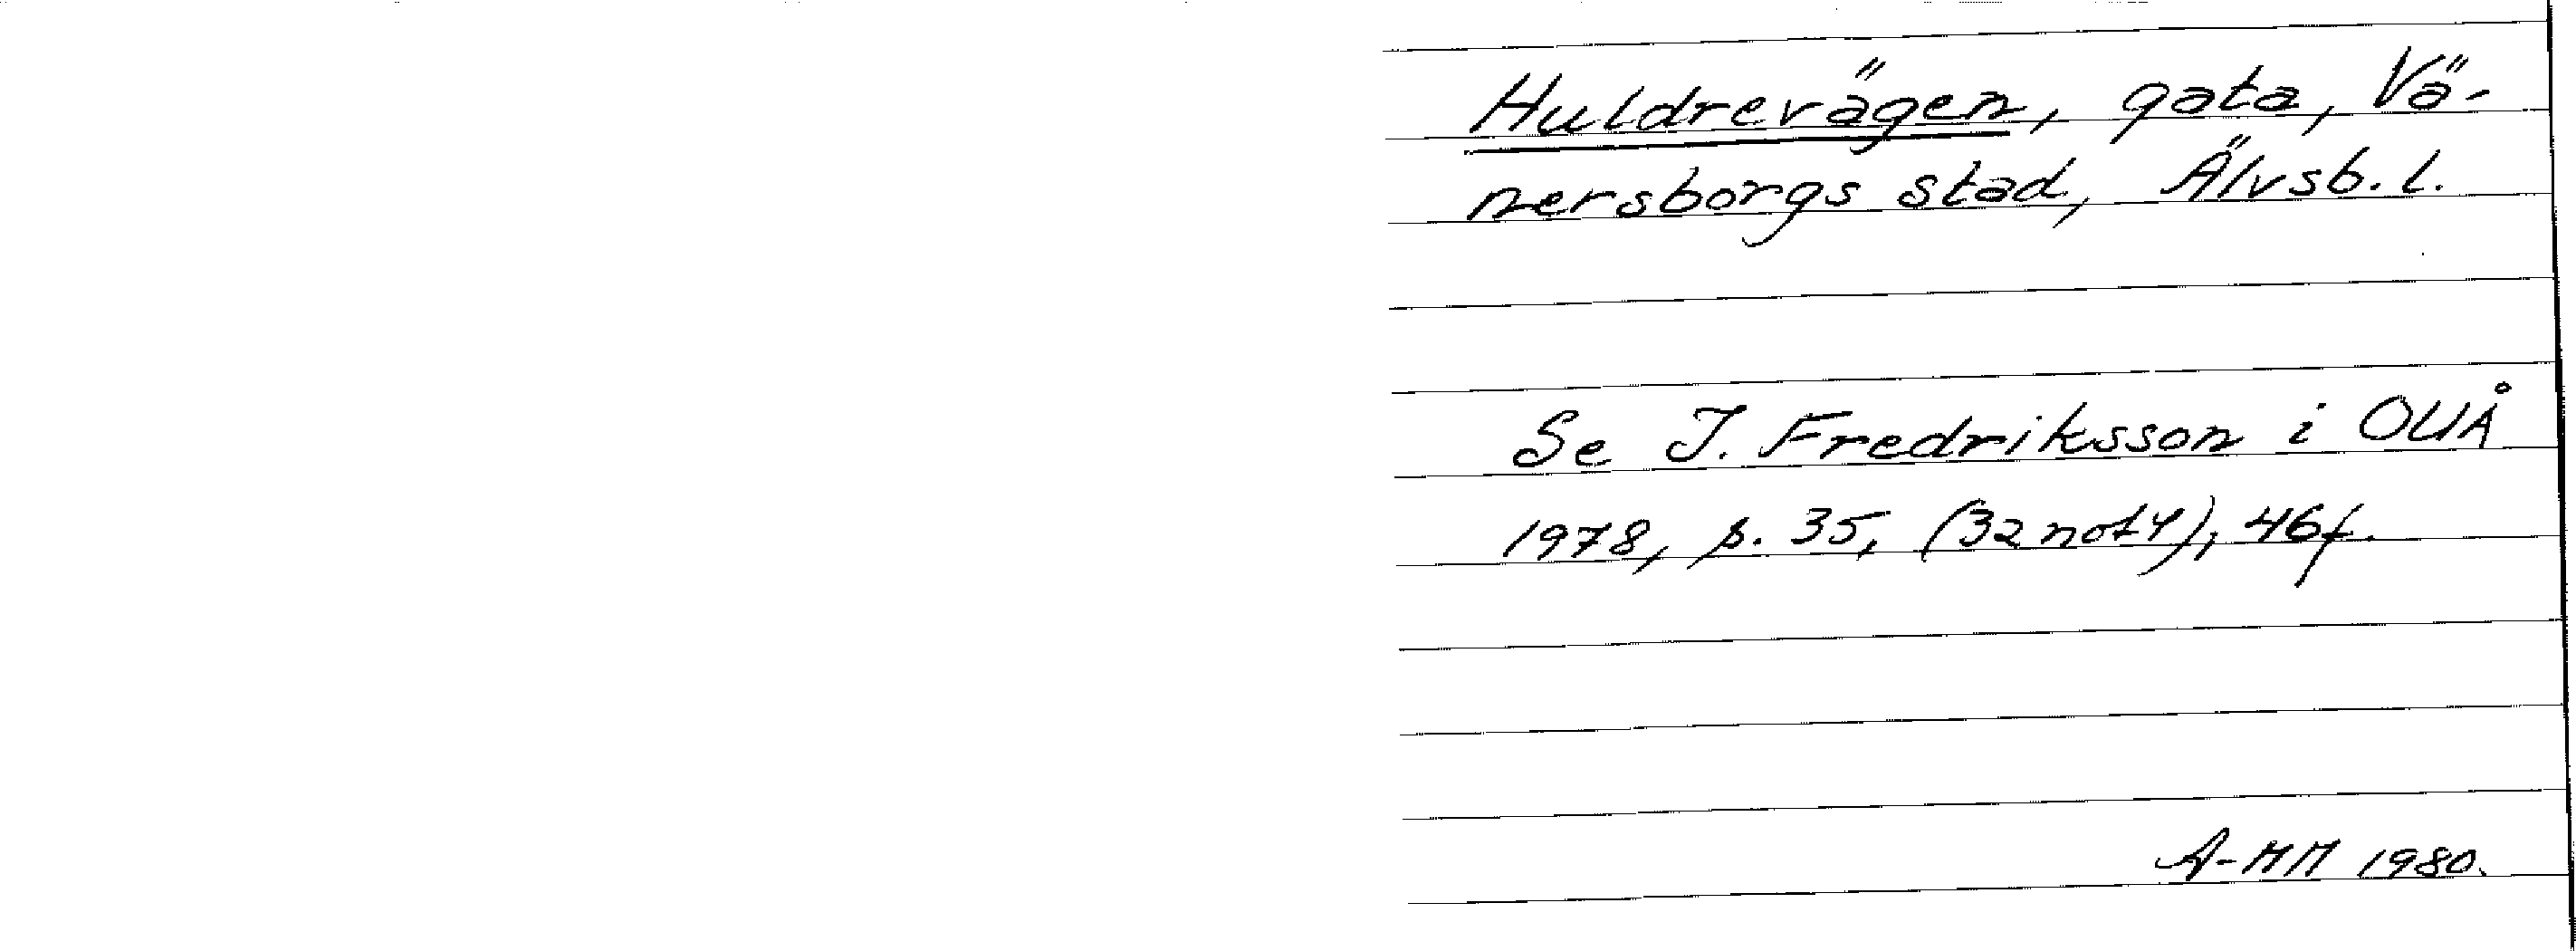 Huldrevägen, gata, Vä-
nersborgs stad, Älvsb. l.
Se I. Fredriksson i OUÅ
1978, s. 35, (32 not 4), 46 f.
A-MM 1980.